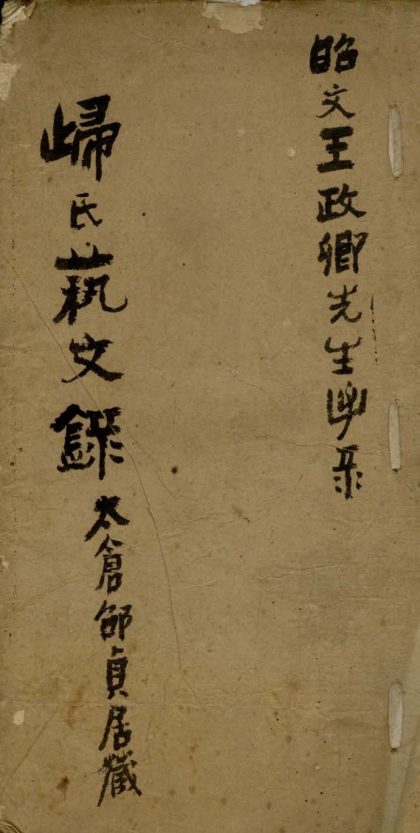 昭文王政卿先生
歸氏藝文錄
太倉邵貞居藏